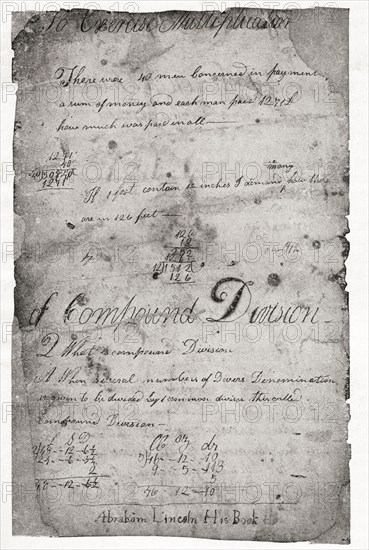 To Exercise Multiplication
There were 40 men Concerned in payment
a sum of money and each man paid 1271£
how much was paid in all —
1271
40
1271
If 1 foot contain 12 inches I demand how many there
are in 126 feet —
126
12
1512
126
of Compound Division
Q What is compound Division
A When several numbers of Divers Denomination
is given to be divided by 1 common divisor this called
Compound Division —
£ S D
lb oz dr
46 - 12 - 10
9 - 5 - 13
5
46 12 10
Abraham Lincoln His Book